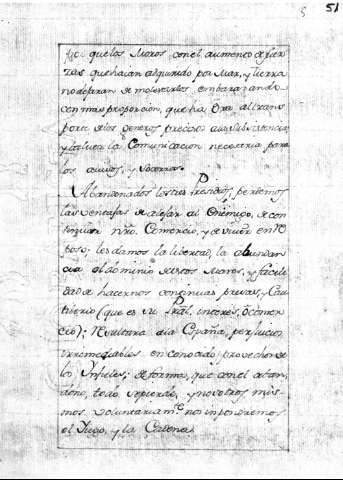 5 51
que los Moros con el aumento de fuer
zas que haian adquirido por Mar, y tierra
no dejaran de molestarlos embarazando
con mas proporcion, que ha Ora el trans
porte de los generos precisos a su subsistencia
la Comunicacion necesaria para
los avisos, y socorros.
Abandonados los tres Presidios, perdemos
las ventajas de alejar al Enemigo, de con
tinuar nro. Comercio, y de vivir en re
poso; les damos la libertad, la abundan
cia el dominio de estos Mares, y facili
dad de hacernos continuas presas, y Cau
tiverio (que es su Pral. interes, o Comer
cio); resultara a la España, perjuicios
irremediables en conocido provecho de
los Infieles; de forma, que con el aban
dono, todo se pierde, y nosotros mis
mos voluntariamte. nos inpondremos
el Jugo, y la Cadena